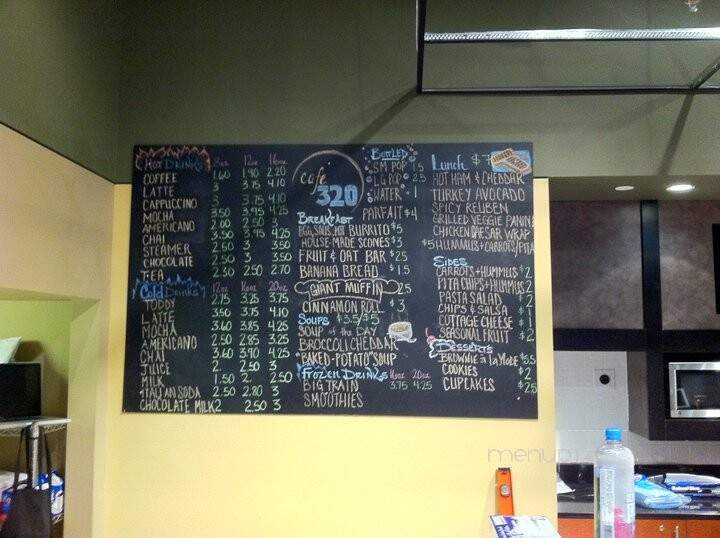 Hot Drinks 8oz 12oz 16oz
COFFEE 1.60 1.90 2.20
LATTE 3 3.75 4.10
CAPPUCCINO 3 3.75 4.10
MOCHA 3.50 3.95 4.25
AMERICANO 2.00 2.50 3
CHAI 3.50 3.95 4.25
STEAMER 2.50 3 3.50
CHOCOLATE 2.50 3 3.50
TEA 2.30 2.50 2.70
Cold Drinks 12oz 16oz 20oz
TODDY 2.75 3.25 3.75
LATTE 3.50 3.75 4.10
MOCHA 3.60 3.85 4.25
AMERICANO 2.50 2.85 3.25
CHAI 3.60 3.90 4.25
JUICE 2 2.50 3
MILK 1.50 2 2.50
ITALIAN SODA 2.50 2.80 3
CHOCOLATE MILK 2 2.50 3
cafe
320
BREAKFAST
EGG, SAUS, HOT BURRITO $5
HOUSE-MADE SCONES $3
FRUIT & OAT BAR $2.5
BANANA BREAD $1.5
GIANT MUFFIN 2.5
CINNAMON ROLL $3
SOUPS $3.5/$5
SOUP of the DAY
BROCCOLI CHEDDAR
"BAKED-POTATO" SOUP
Frozen Drinks 16oz 20oz
BIG TRAIN 3.75 4.25
SMOOTHIES
BOTTLED
SM POP 1.5
LG POP 2.5
WATER 1
PARFAIT $4
Lunch $7
HOT HAM & CHEDDAR
TURKEY AVOCADO
SPICY REUBEN
GRILLED VEGGIE PANINI
CHICKEN CAESAR WRAP
$5 HUMMUS+CARROTS/PITA
SIDES
CARROTS+HUMMUS $2
PITA CHIPS+HUMMUS 2
PASTA SALAD 2
CHIPS & SALSA $1
COTTAGE CHEESE $1
SEASONAL FRUIT $2
DESSERTS
BROWNIE a la MODE $5.5
COOKIES $2
CUPCAKES $2.5
menupix